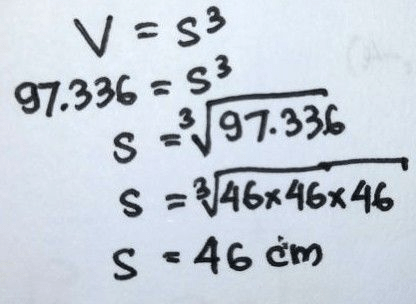 V = s³
97.336 = s³
s = ³√97.336
s = ³√46×46×46
s = 46 cm